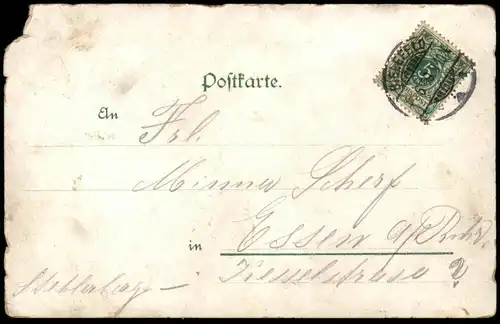 Postkarte.
An Frl.
Minna Scherf
in Essen a/Ruhr
Kesselstrasse
5